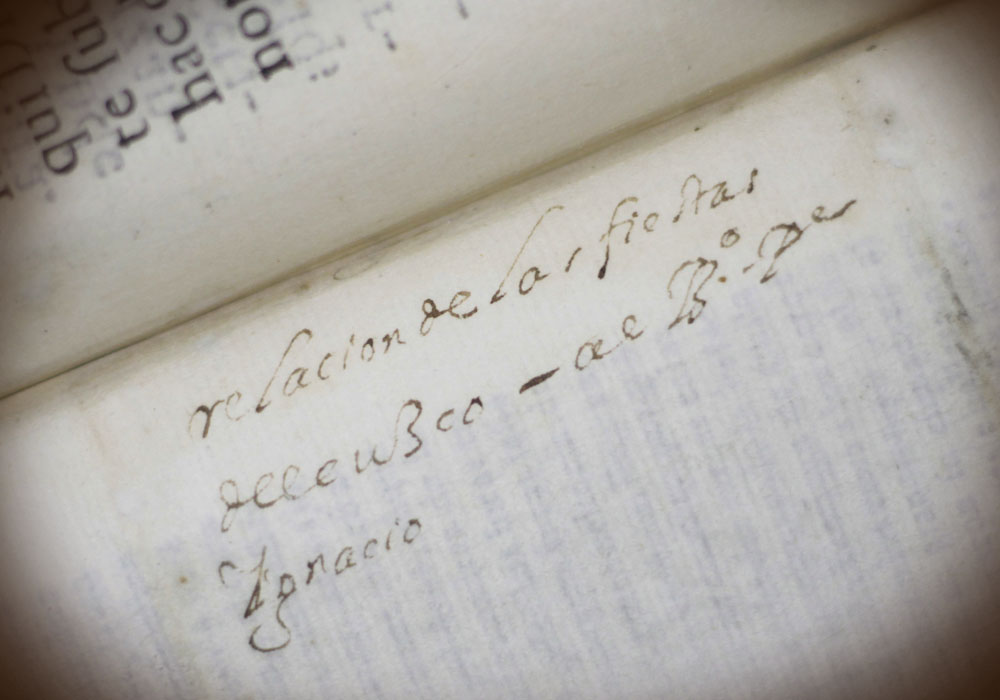 qui
te ſub
hac
relacion de las fiestas
del cuzco — al B.º P.e
Ignacio